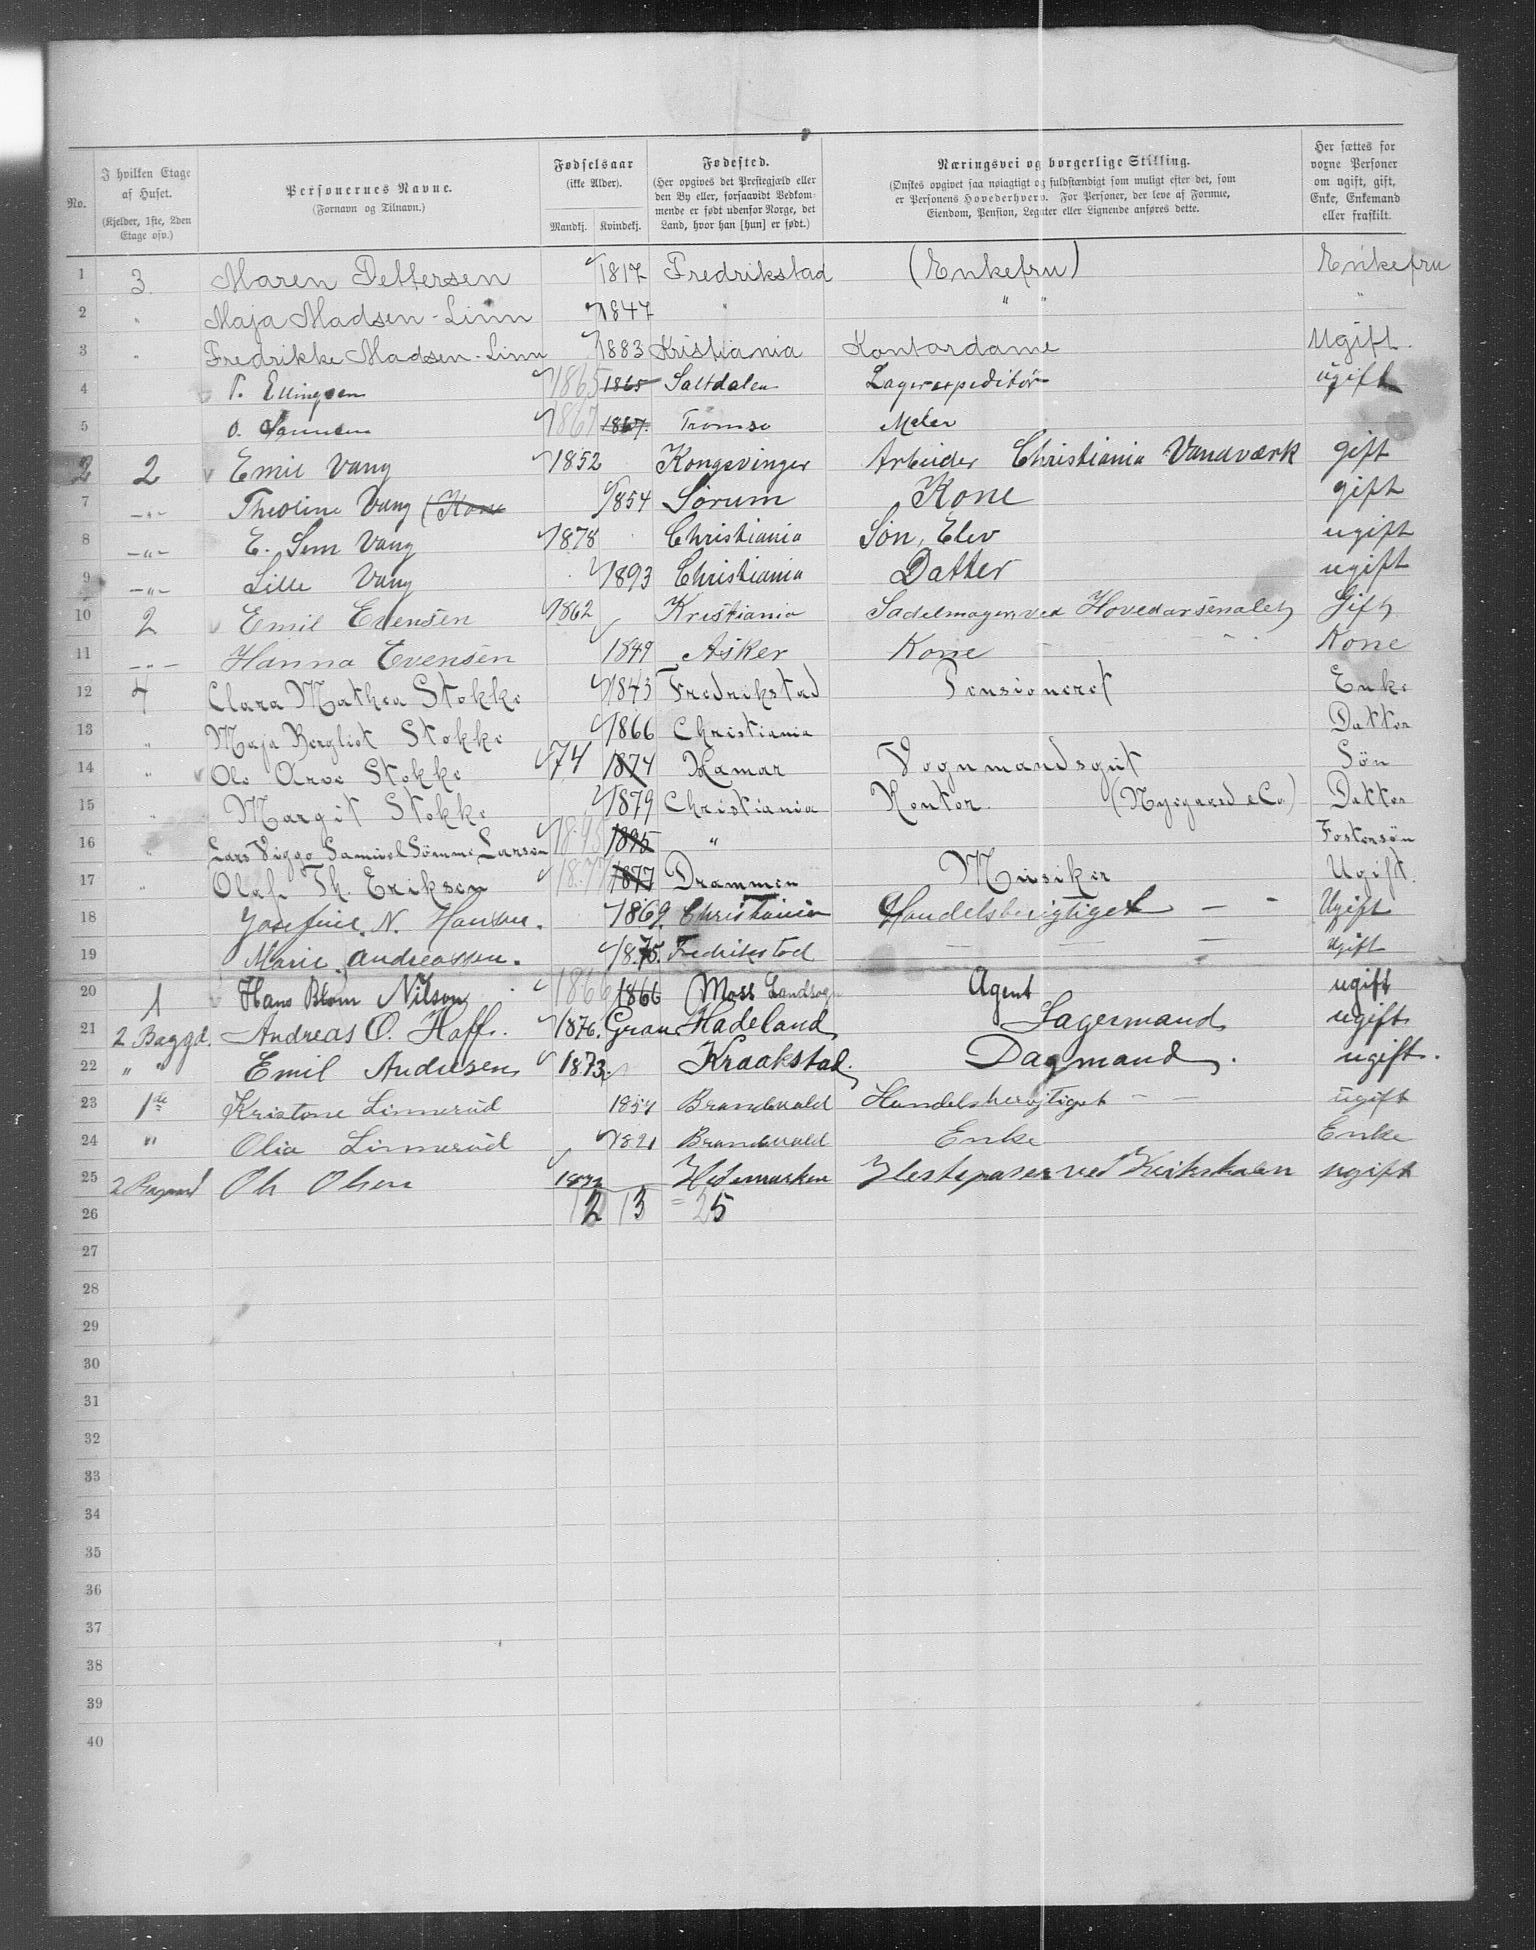 No. I hvilken Etage af Huset. (Kjelder, 1ste, 2den Etage osv.) Personernes Navne. (Fornavn og Tilnavn.) Fødselsaar (ikke Alder). Mandkj. Kvindekj. Fødested. (Her opgives det Prestegjæld eller den By eller, forsaavidt Vedkommende er født udenfor Norge, det Land, hvor han [hun] er født.) Næringsvei og borgerlige Stilling. (Ønskes opgivet saa nøiagtigt og fuldstændigt som muligt efter det, som er Personens Hovederhverv. For Personer, der leve af Formue, Eiendom, Pension, Legater eller Lignende anføres dette. Her sættes for voxne Personer om ugift, gift, Enke, Enkemand eller fraskilt.
1 3 Maren Pettersen 1817 Fredrikstad (Enkefru) Enkefru
2 " Maja Madsen-Linn 1847 " " " "
3 " Fredrikke Madsen-Linn 1883 Kristiania Kontordame Ugift.
4 P. Ellingsen 1865 1865 Saltdalen Lagerexpeditör ugift
5 O. 1867 1867. Tromsø Maler
2 2 Emil Vang 1852 Kongsvinger Arbeider Christiania Vandværk gift
7 -"- Theoline Vang (Kone 1854 Sørum Kone gift
8 -"- E. Sem Vang 1878 Christiania Søn, Elev ugift
9 -"- Lille Vang 1893 Christiania Datter ugift
10 2 Emil Evensen 1862 Kristiania Sadelmager ved Hovedarsenalet Gift
11 -"- Hanna Evensen 1849 Asker Kone Kone
12 4 Clara Mathea Stokke 1843 Fredrikstad Pensioneret Enke
13 " Maja Bergliot Stokke 1866 Christiania Datter
14 " Ole Arve Stokke 74 1874 Hamar Vognmandsgut Søn
15 " Margit Stokke 1879 Christiania Kontor. (Nygaard & Co.) Datter
16 " Lars Viggo Samuel Sömme Larsen 1895 1895 " Fostersøn
17 " Olaf Th. Eriksen 1877 1877 Drammen Musiker Ugift.
18 Josefine N. Hansen. 1869. Christiania Handelsberigtiget - - Ugift
19 Marie Andreassen. 1875. Fredrikstad - - - Ugift
20 1 Hans Blom Nilsen 1866 1866 Moss Landsogn Agent ugift
21 2 Baggd. Andreas O. Hoff. 1876. Gran Hadeland Lagermand ugift
22 " " Emil Andresen 1873. Kraakstad. Dagmand. ugift.
23 1ste Kristone Linnerud 1857 Brandvold Handelsberigtiget - - ugift
24 " Olia Linnerud 1821 Brandvold Enke Enke
25 2 Bagaard Ole Olsen Hedemarken ved ugift
26 12 13 = 25
27
28
29
30
31
32
33
34
35
36
37
38
39
40